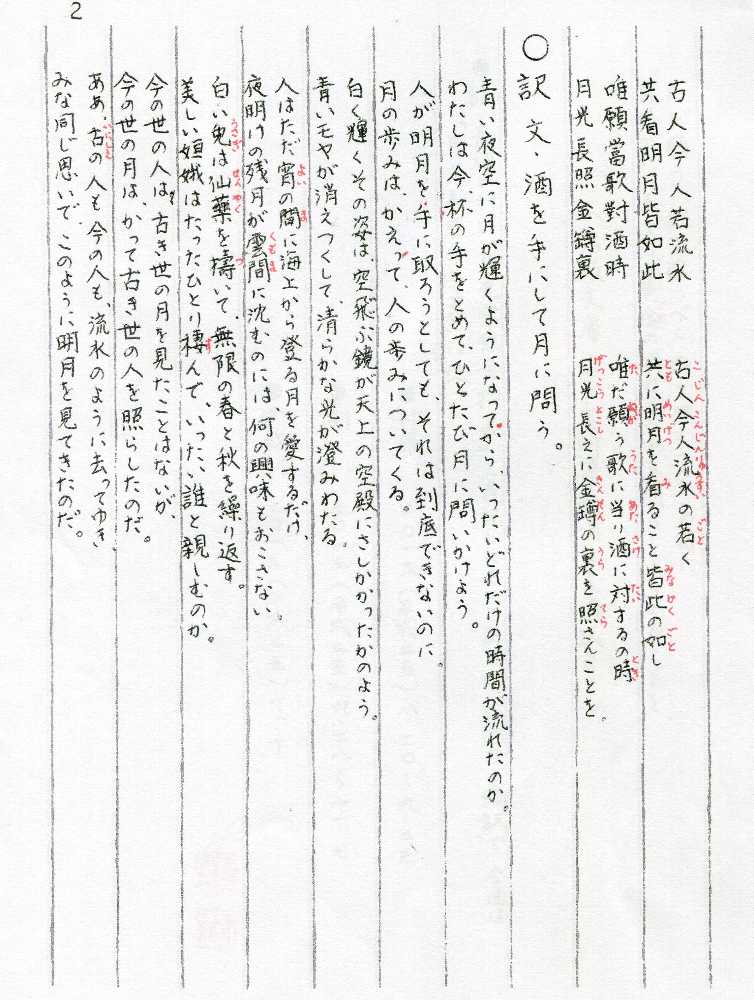 2
古人今人若流水　古人今人流水の若く
共看明月皆如此　共に明月を看ること皆此の如し
唯願當歌對酒時　唯だ願う歌に当り酒に対するの時
月光長照金罇裏　月光長えに金罇の裏を照さんことを。
○訳文・酒を手にして月に問う。
青い夜空に月が輝くようになってから、いったいどれだけの時間が流れたのか。
わたしは今、杯の手をとめて、ひとたび月に問いかけよう。
人が明月を手に取ろうとしても、それは到底できないのに。
月の歩みは、かえって人の歩みについてくる。
白く輝くその姿は、空飛ぶ鏡が天上の空殿にさしかかったかのよう。
青いモヤが消えつくして、清らかな光が澄みわたる。
人はただ宵の間に海上から登る月を愛するだけ、
夜明けの残月が雲間に沈むのには、何の興味もおこさない。
白い兎は仙藥を擣いて、無限の春と秋を繰り返す。
美しい姮娥はたったひとり棲んで、いったい誰と親しむのか。
今の世の人は、古き世の月を見たことはないが、
今の世の月は、かつて古き世の人を照らしたのだ。
ああ、古の人も今の人も、流水のように去ってゆき、
みな同じ思いで、このように明月を見てきたのだ。